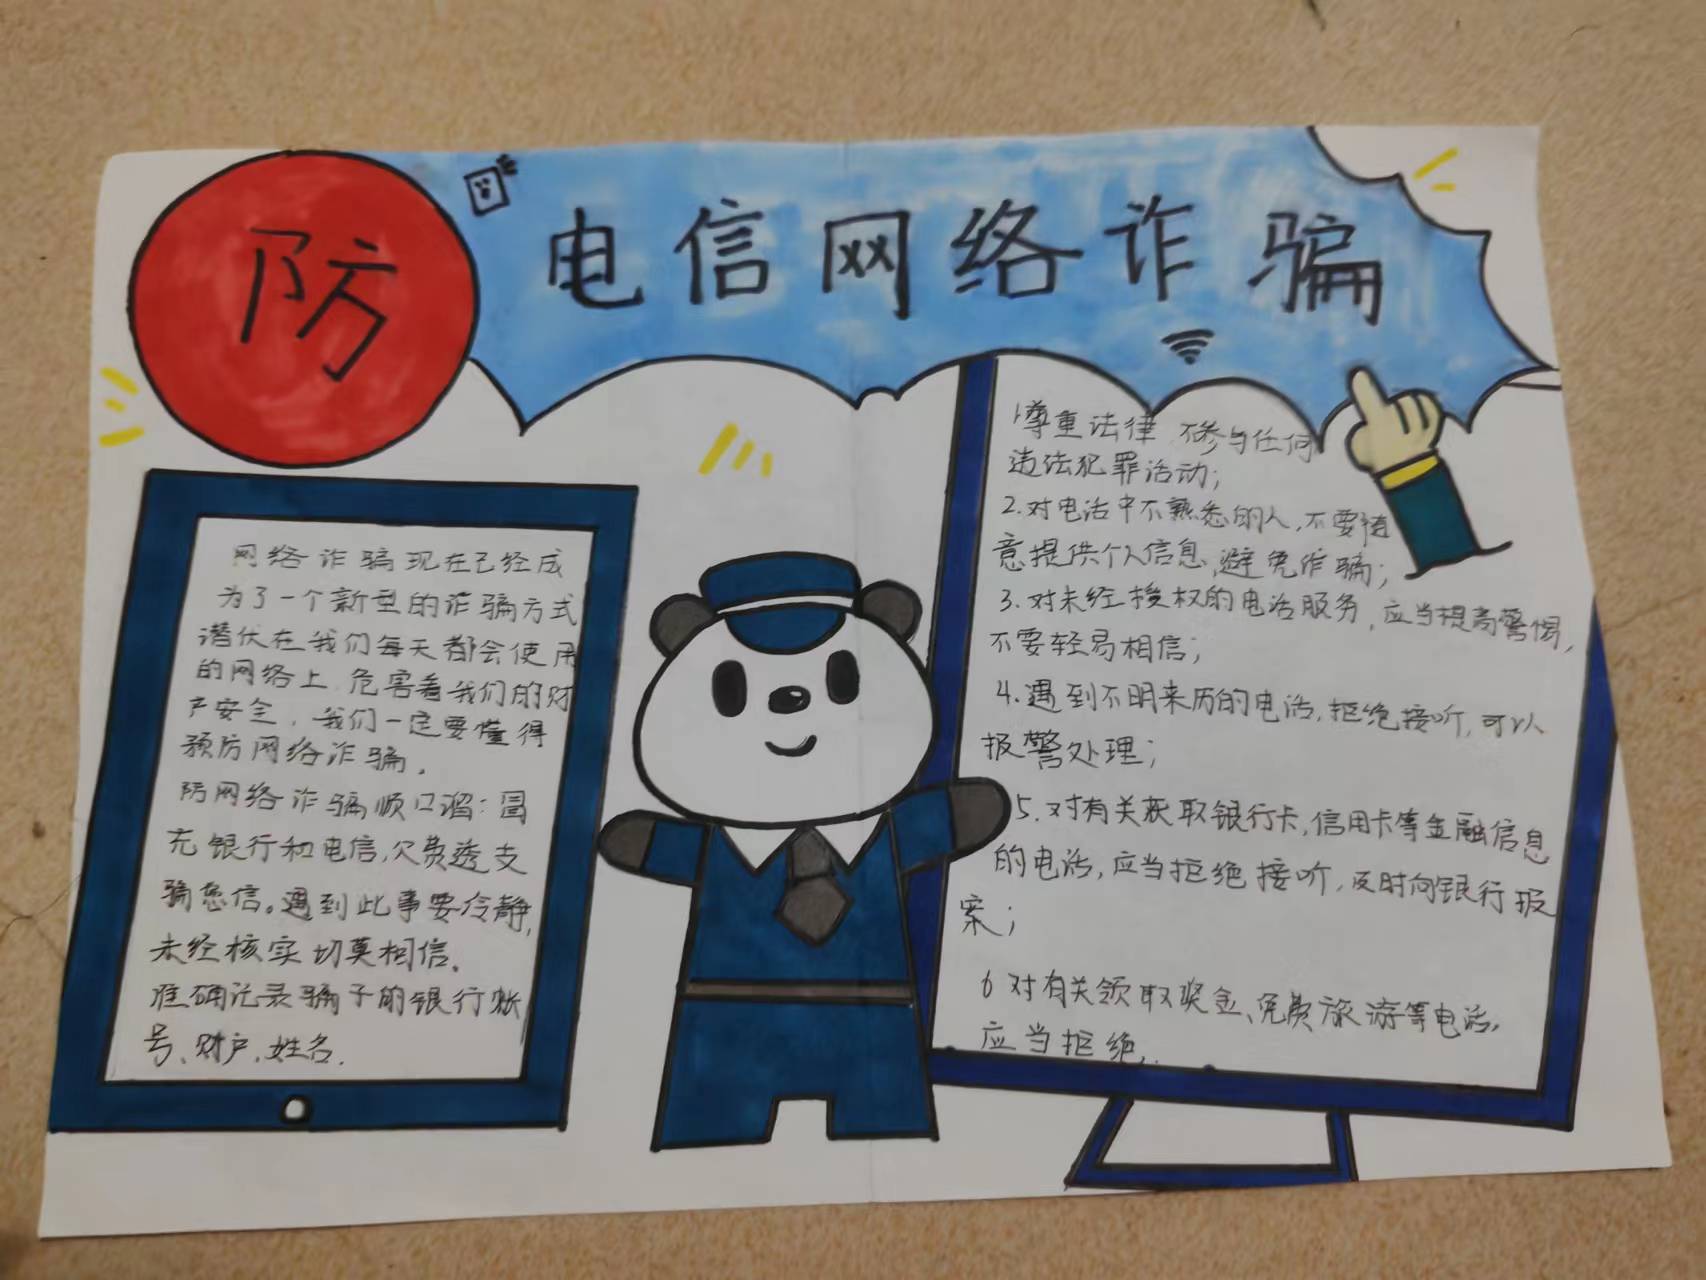 防
电信网络诈骗
网络诈骗现在已经成
为了一个新型的诈骗方式
潜伏在我们每天都会使用
的网络上,危害着我们的财
产安全,我们一定要懂得
预防网络诈骗.
防网络诈骗顺口溜:冒
充银行和电信,欠费透支
骗您信。遇到此事要冷静,
未经核实切莫相信.
准确记录骗子的银行账
号、财户,姓名.
1尊重法律,不参与任何
违法犯罪活动;
2.对电话中不熟悉的人,不要随
意提供个人信息,避免诈骗;
3.对未经授权的电话服务,应当提高警惕,
不要轻易相信;
4.遇到不明来历的电话,拒绝接听,可以
报警处理;
5.对有关获取银行卡,信用卡等金融信息
的电话,应当拒绝接听,及时向银行报
案;
6对有关领取奖金、免费旅游等电话,
应当拒绝.